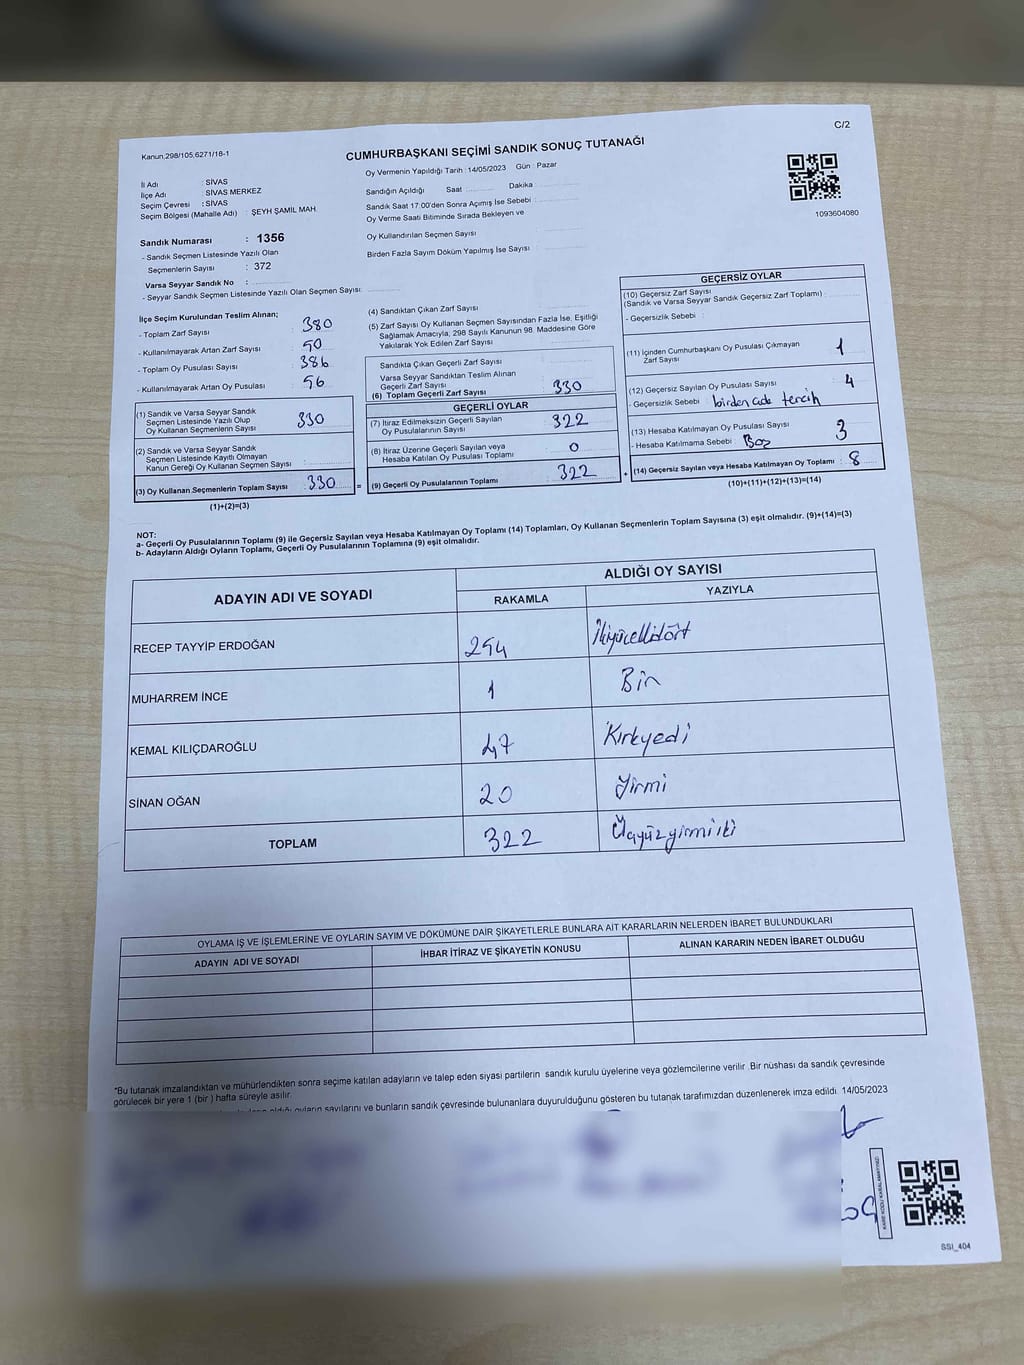 C/2
Kanun,298/105,6271/18-1
CUMHURBAŞKANI SEÇİMİ SANDIK SONUÇ TUTANAĞI
İl Adı : SİVAS
İlçe Adı : SİVAS MERKEZ
Seçim Çevresi : SİVAS
Seçim Bölgesi (Mahalle Adı) : ŞEYH ŞAMİL MAH.
Sandık Numarası : 1356
- Sandık Seçmen Listesinde Yazılı Olan
Seçmenlerin Sayısı : 372
Varsa Seyyar Sandık No :
- Seyyar Sandık Seçmen Listesinde Yazılı Olan Seçmen Sayısı:
Oy Vermenin Yapıldığı Tarih : 14/05/2023 Gün : Pazar
Sandığın Açıldığı Saat Dakika
Sandık Saat 17:00'den Sonra Açımış İse Sebebi :
Oy Verme Saati Bitiminde Sırada Bekleyen ve
Oy Kullandırılan Seçmen Sayısı
Birden Fazla Sayım Döküm Yapılmış İse Sayısı :
1093604080
İlçe Seçim Kurulundan Teslim Alınan;
- Toplam Zarf Sayısı : 380
- Kullanılmayarak Artan Zarf Sayısı : 50
- Toplam Oy Pusulası Sayısı : 386
- Kullanılmayarak Artan Oy Pusulası : 56
(1) Sandık ve Varsa Seyyar Sandık
Seçmen Listesinde Yazılı Olup
Oy Kullanan Seçmenlerin Sayısı : 330
(2) Sandık ve Varsa Seyyar Sandık
Seçmen Listesinde Kayıtlı Olmayan
Kanun Gereği Oy Kullanan Seçmen Sayısı :
(3) Oy Kullanan Seçmenlerin Toplam Sayısı : 330 =
(1)+(2)=(3)
(4) Sandıktan Çıkan Zarf Sayısı :
(5) Zarf Sayısı Oy Kullanan Seçmen Sayısından Fazla İse, Eşitliği
Sağlamak Amacıyla, 298 Sayılı Kanunun 98. Maddesine Göre
Yakılarak Yok Edilen Zarf Sayısı :
Sandıkta Çıkan Geçerli Zarf Sayısı :
Varsa Seyyar Sandıktan Teslim Alınan
Geçerli Zarf Sayısı :
(6) Toplam Geçerli Zarf Sayısı : 330
GEÇERLİ OYLAR
(7) İtiraz Edilmeksizin Geçerli Sayılan
Oy Pusulalarının Sayısı : 322
(8) İtiraz Üzerine Geçerli Sayılan veya
Hesaba Katılan Oy Pusulası Toplamı : 0
(9) Geçerli Oy Pusulalarının Toplamı : 322 +
GEÇERSİZ OYLAR
(10) Geçersiz Zarf Sayısı
(Sandık ve Varsa Seyyar Sandık Geçersiz Zarf Toplamı) :
- Geçersizlik Sebebi :
(11) İçinden Cumhurbaşkanı Oy Pusulası Çıkmayan
Zarf Sayısı : 1
(12) Geçersiz Sayılan Oy Pusulası Sayısı : 4
- Geçersizlik Sebebi : tercih
(13) Hesaba Katılmayan Oy Pusulası Sayısı : 3
- Hesaba Katılmama Sebebi : Boş
(14) Geçersiz Sayılan veya Hesaba Katılmayan Oy Toplamı : 8
(10)+(11)+(12)+(13)=(14)
NOT:
a- Geçerli Oy Pusulalarının Toplamı (9) ile Geçersiz Sayılan veya Hesaba Katılmayan Oy Toplamı (14) Toplamları, Oy Kullanan Seçmenlerin Toplam Sayısına (3) eşit olmalıdır. (9)+(14)=(3)
b- Adayların Aldığı Oyların Toplamı, Geçerli Oy Pusulalarının Toplamına (9) eşit olmalıdır.
ADAYIN ADI VE SOYADI
ALDIĞI OY SAYISI
RAKAMLA YAZIYLA
RECEP TAYYİP ERDOĞAN 254 İkiyüzellidört
MUHARREM İNCE 1 Bir
KEMAL KILIÇDAROĞLU 47 Kırkyedi
SİNAN OĞAN 20 Yirmi
TOPLAM 322 Üçyüzyirmiiki
OYLAMA İŞ VE İŞLEMLERİNE VE OYLARIN SAYIM VE DÖKÜMÜNE DAİR ŞİKAYETLERLE BUNLARA AİT KARARLARIN NELERDEN İBARET BULUNDUKLARI
ADAYIN ADI VE SOYADI İHBAR İTİRAZ VE ŞİKAYETİN KONUSU ALINAN KARARIN NEDEN İBARET OLDUĞU
"Bu tutanak imzalandıktan ve mühürlendikten sonra seçime katılan adayların ve talep eden siyasi partilerin sandık kurulu üyelerine veya gözlemcilerine verilir .Bir nüshası da sandık çevresinde
görülecek bir yere 1 (bir ) hafta süreyle asılır.
aldığı oyların sayılarını ve bunların sandık çevresinde bulunanlara duyurulduğunu gösteren bu tutanak tarafımızdan düzenlenerek imza edildi. 14/05/2023
KARE KODU KARALAMAYINIZ!
SSI_404